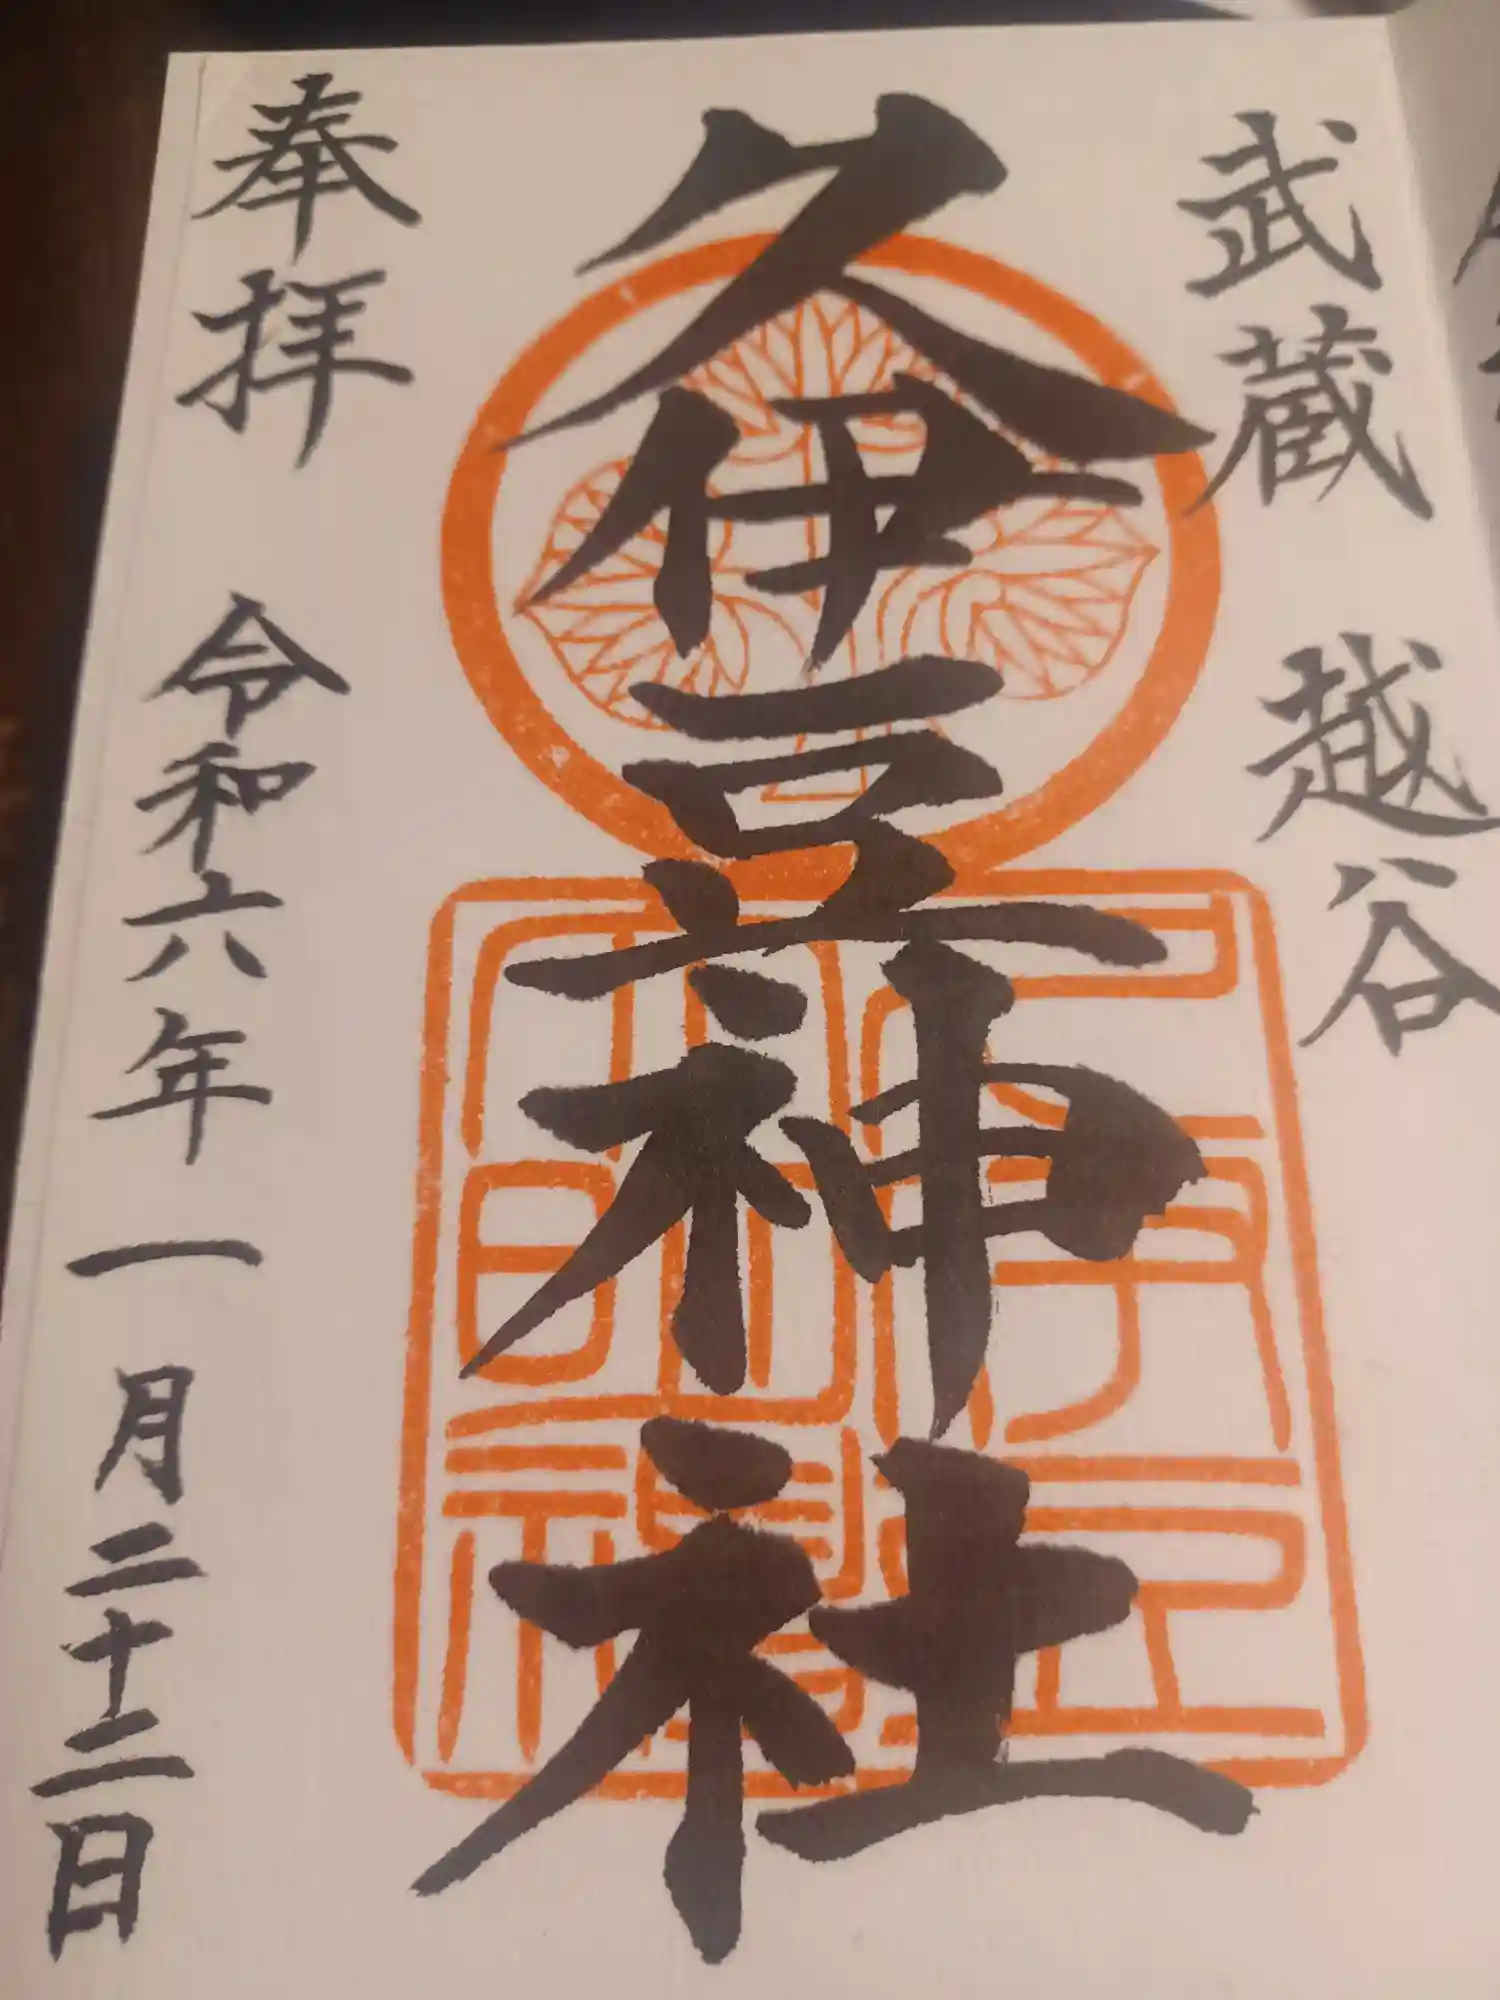 武蔵 越谷
久伊豆神社
奉拝 令和六年一月二十二日